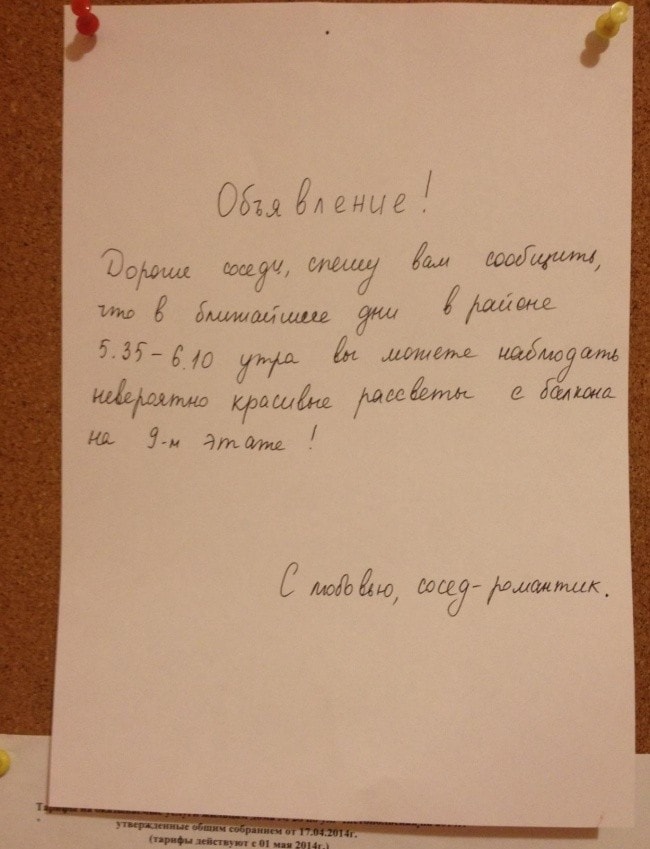 Объявление!
Дорогие соседи, спешу вам сообщить,
что в ближайшее дни в районе
5.35-6.10 утра вы можете наблюдать
невероятно красивые рассветы с балкона
на 9-м этаже!
С любовью, сосед-романтик.
утвержденные общим собранием от 17.04.2014г.
(тарифы действуют с 01 мая 2014г.)